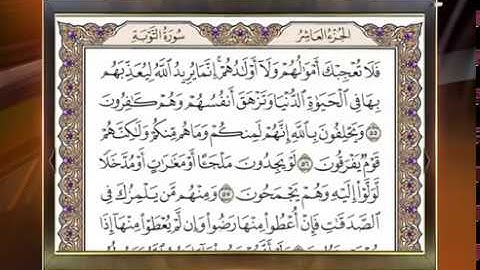 الجزء العاشر
سورة التوبة
فَلَا تُعْجِبْكَ أَمْوَٰلُهُمْ وَلَآ أَوْلَٰدُهُمْ ۚ إِنَّمَا يُرِيدُ ٱللَّهُ لِيُعَذِّبَهُم
بِهَا فِى ٱلْحَيَوٰةِ ٱلدُّنْيَا وَتَزْهَقَ أَنفُسُهُمْ وَهُمْ كَٰفِرُونَ
٥٥ وَيَحْلِفُونَ بِٱللَّهِ إِنَّهُمْ لَمِنكُمْ وَمَا هُم مِّنكُمْ وَلَٰكِنَّهُمْ
قَوْمٌ يَفْرَقُونَ ٥٦ لَوْ يَجِدُونَ مَلْجَـًٔا أَوْ مَغَٰرَٰتٍ أَوْ مُدَّخَلًا
لَّوَلَّوْا۟ إِلَيْهِ وَهُمْ يَجْمَحُونَ ٥٧ وَمِنْهُم مَّن يَلْمِزُكَ فِى
ٱلصَّدَقَٰتِ فَإِنْ أُعْطُوا۟ مِنْهَا رَضُوا۟ وَإِن لَّمْ يُعْطَوْا۟ مِنْهَآ إِذَا